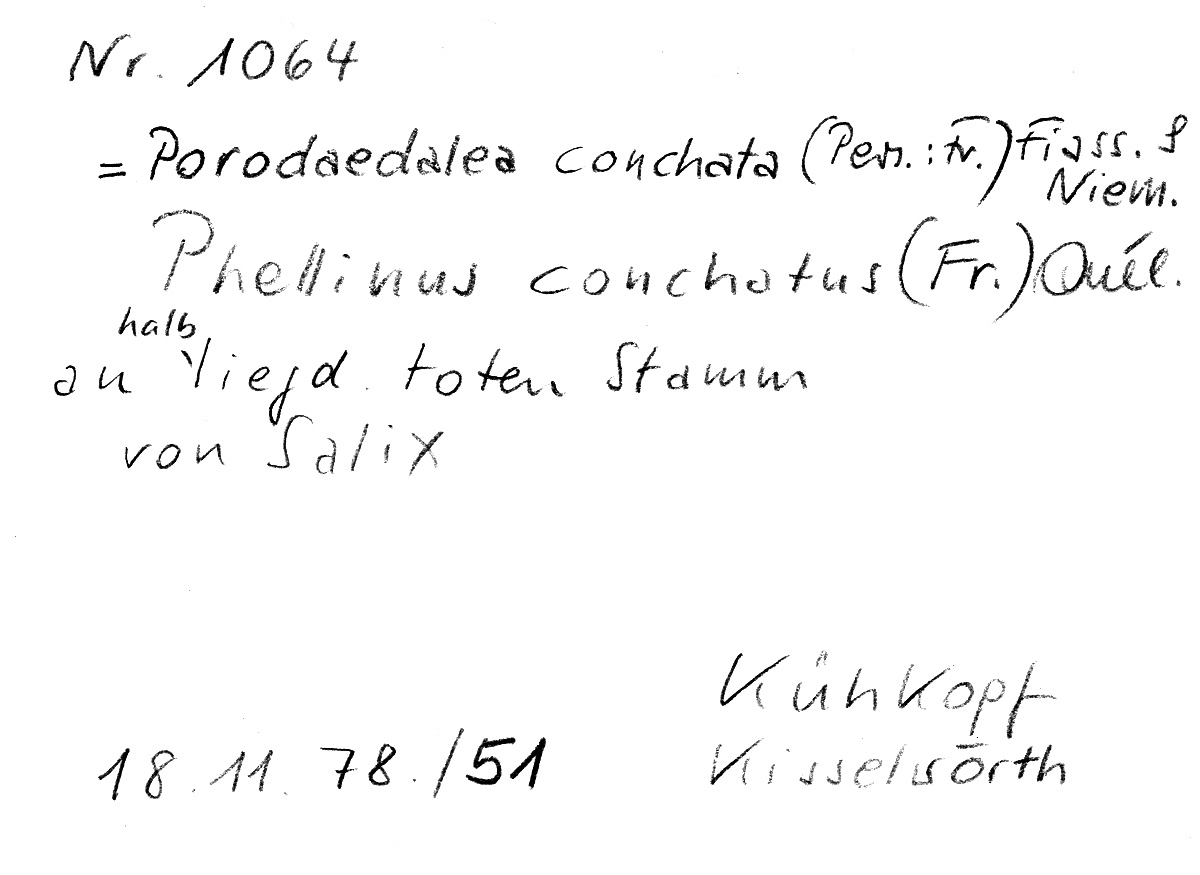 Nr. 1064
= Porodaedalea conchata (Pers.: Fr.) Fiass. &
Niem.
Phellinus conchatus (Fr.) Quél.
halb
an liegd. toten Stamm
von Salix
Kühkopf
18.11.78./51 Kisselwörth